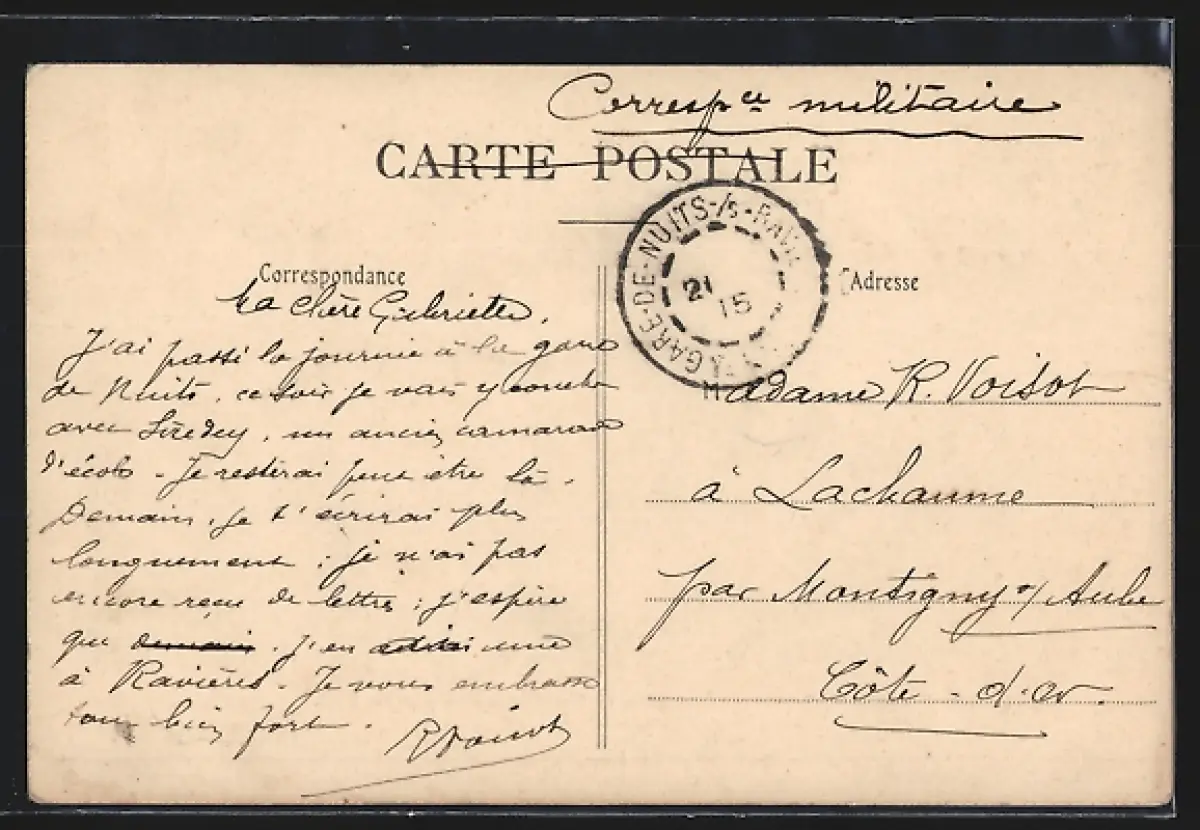 Correspce militaire
CARTE POSTALE
GARE-DE-NUITS-/s-RAVIÈRES
21
15
Correspondance
Adresse
Ma chère Gabrielle,
J'ai passé la journée à la gare
de Nuits, ce soir je vais y coucher
avec Liredey, un ancien camarade
d'école. Je resterai peut être là.
Demain, je t'écrirai plus
longuement ; je n'ai pas
encore reçu de lettre ; j'espère
que demain j'en aurai une
à Ravières. Je vous embrasse
tous bien fort.
RVoisot
Madame R. Voisot
à Lachaume
par Montigny s/ Aube
Côte-d'or.